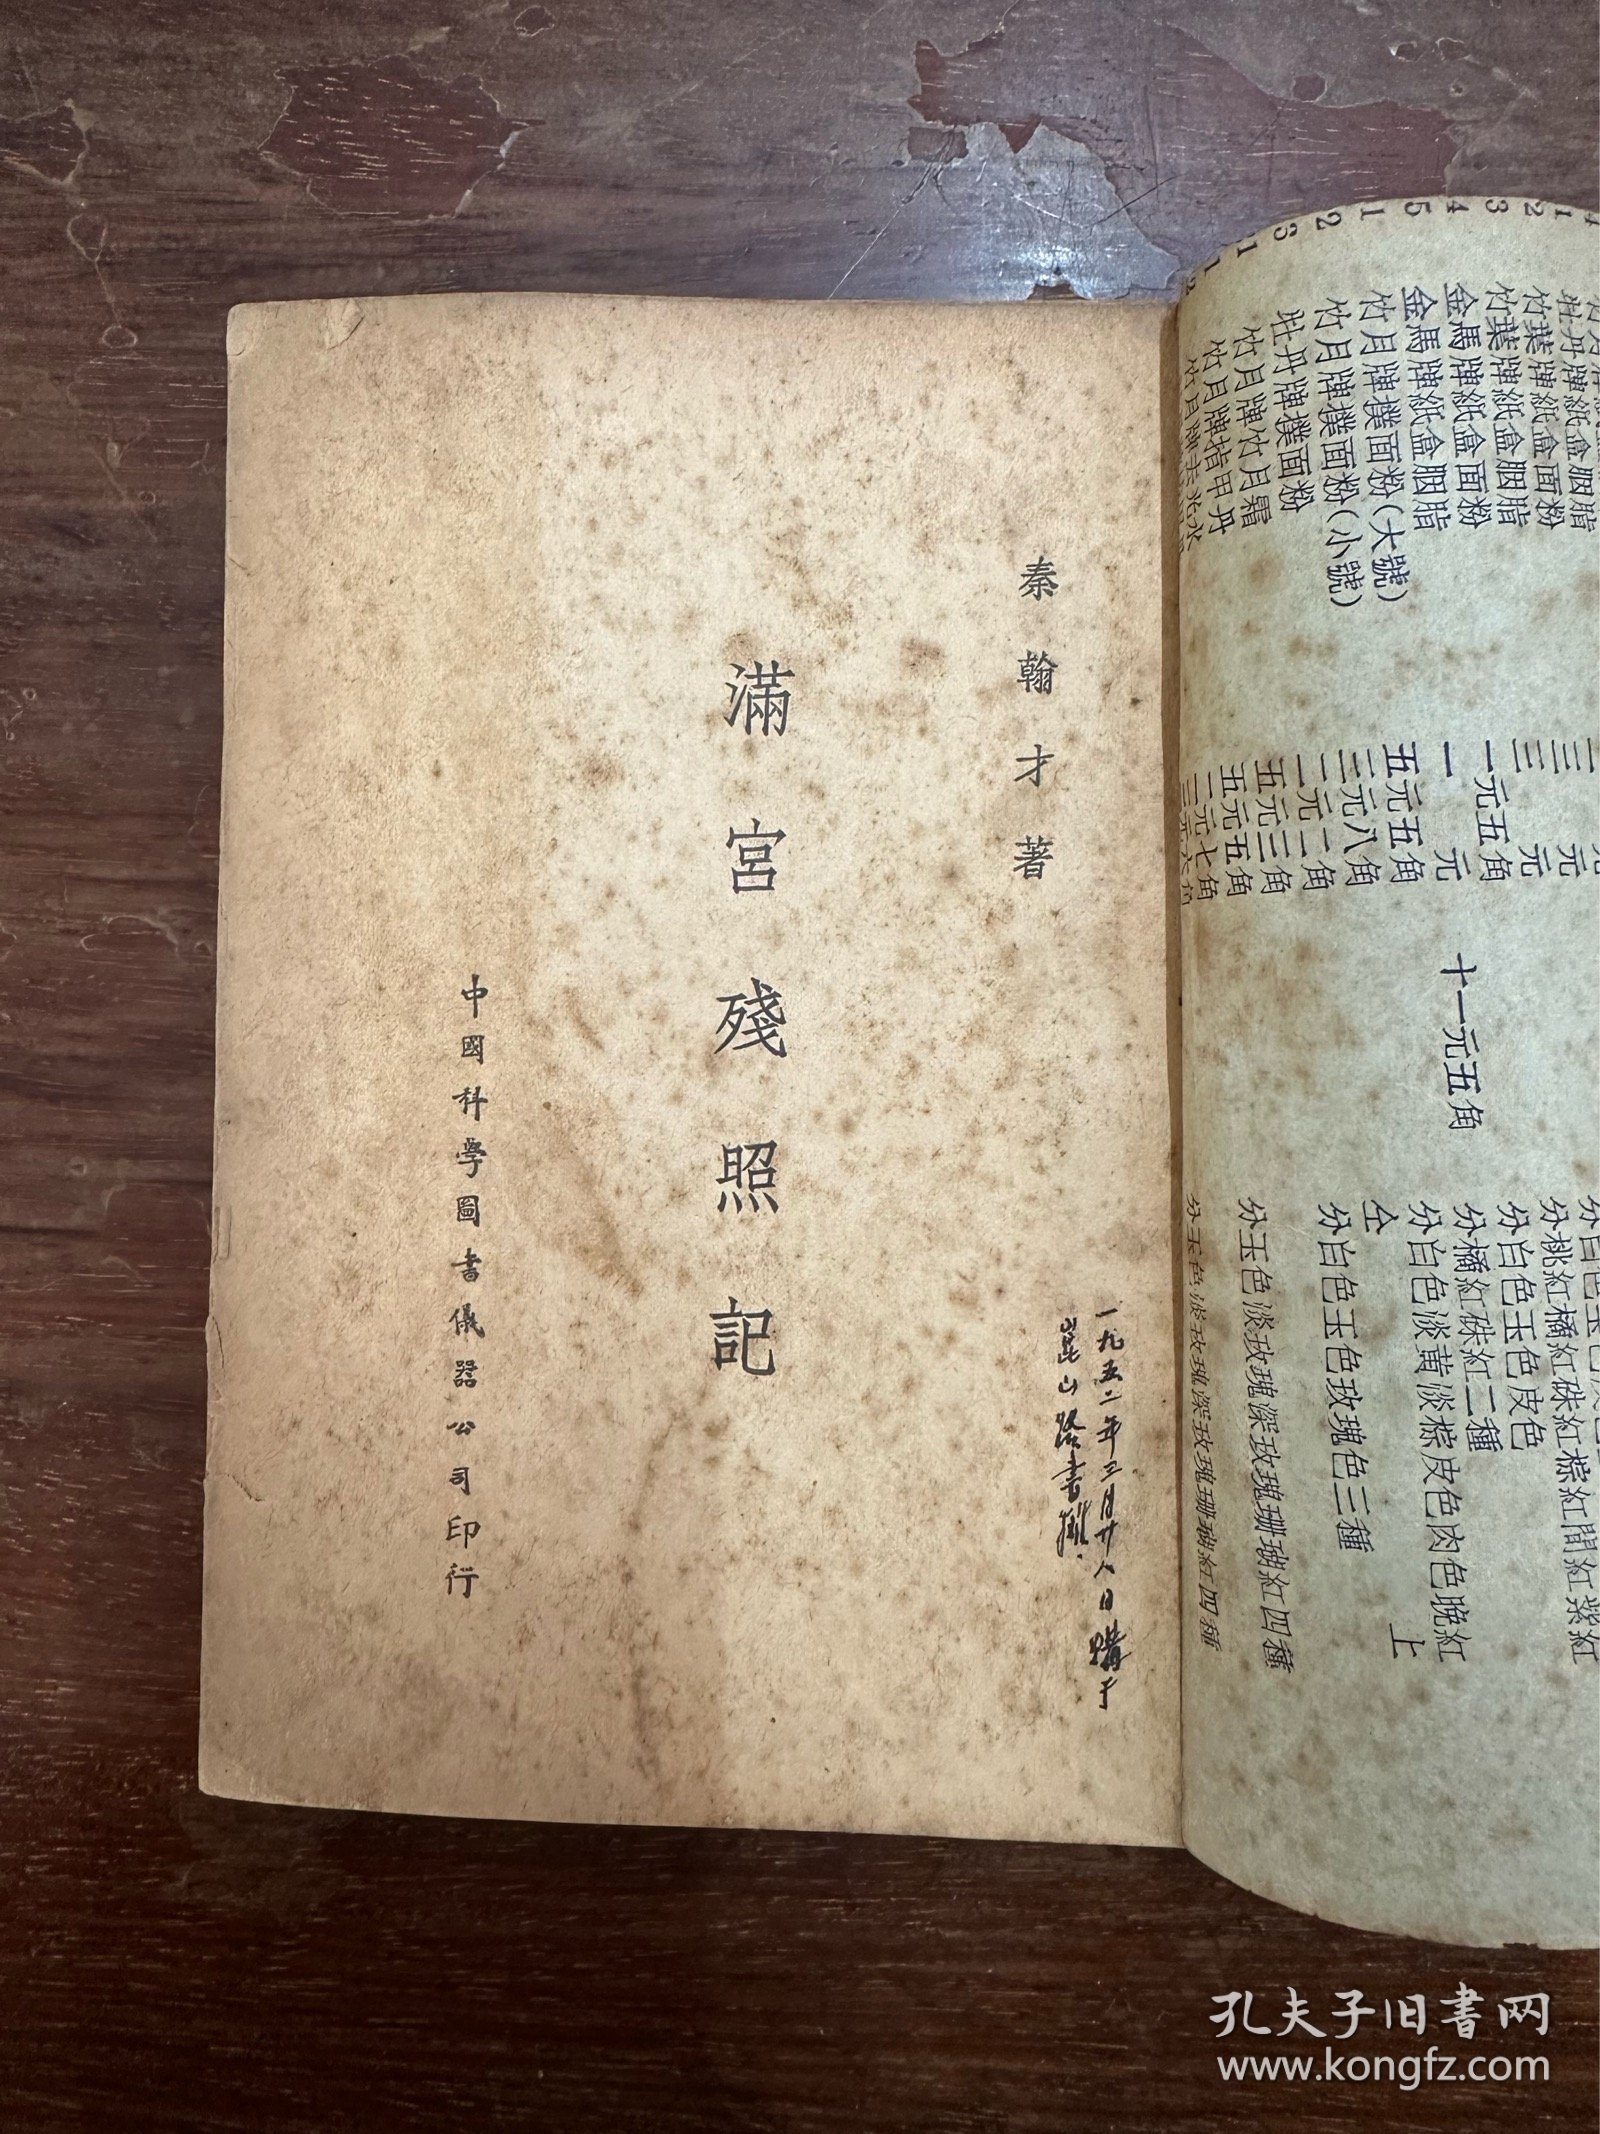 秦翰才著
滿宮殘照記
中國科學圖書儀器公司印行
一九五二年三月廿八日購于
崑山路書攤.
牡丹牌紙盒胭脂
竹葉牌紙盒面粉
竹葉牌紙盒胭脂
金馬牌紙盒面粉
金馬牌紙盒胭脂
竹月牌撲面粉(大號)
竹月牌撲面粉(小號)
牡丹牌撲面粉
竹月牌竹月霜
竹月牌指甲丹
一元五角
一元
五元五角
二元八角
一元二角
五元三角
五元五角
二元七角
三元六角
十一元五角
分桃紅橘紅硃紅棕紅間紅紫紅
分白色玉色皮色
分橘紅硃紅二種
分白色淡黃淡棕皮色肉色晚紅
仝上
分白色玉色玫瑰色三種
分玉色淡玫瑰深玫瑰珊瑚紅四種
分玉色淡玫瑰深玫瑰珊瑚紅四種
孔夫子旧书网
www.kongfz.com